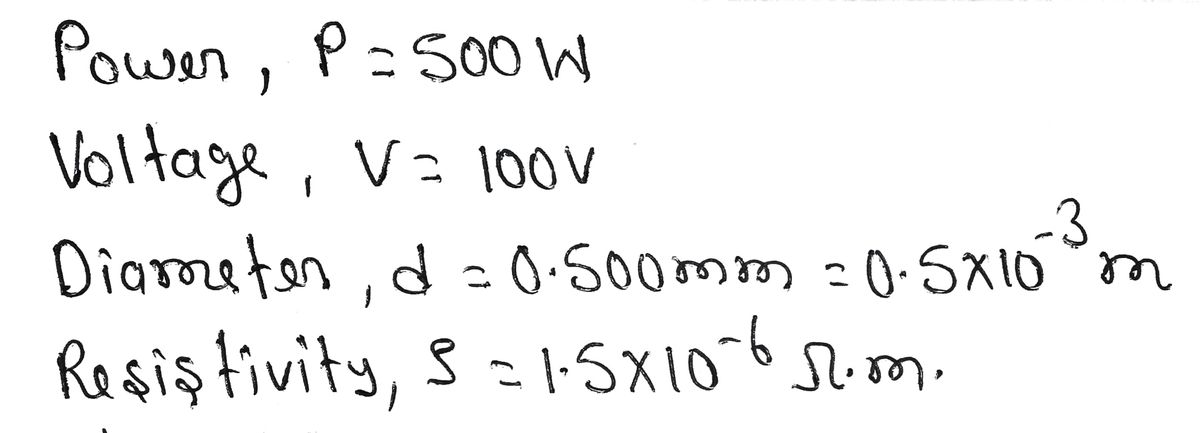 Power, P = 500 W
Voltage, V = 100V
Diameter, d = 0.500mm = 0.5×10⁻³ m
Resistivity, ρ = 1.5×10⁻⁶ Ω.m.